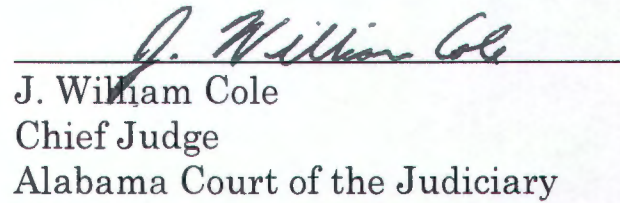 J. William Cole
J. William Cole
Chief Judge
Alabama Court of the Judiciary